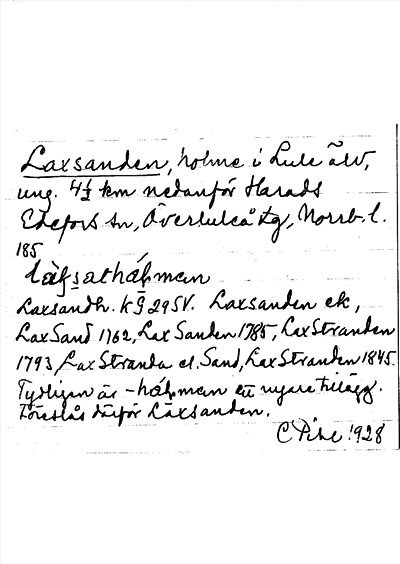 Laxsanden, holme i Lule älv,
ung. 4½ km nedanför Harads
Edefors sn, Överluleå tg, Norrb. l.
185
Laxsandh. K Ḡ 29SV. Laxsanden ek,
Lax Sand 1762, Lax Sanden 1785, Lax Stranden
1793, Lax Stranda el. Sand, Lax Stranden 1845.
Tydligen är -hólman ett nyare tillägg.
Föreslås därför Laxsanden.
C Pihl 1928